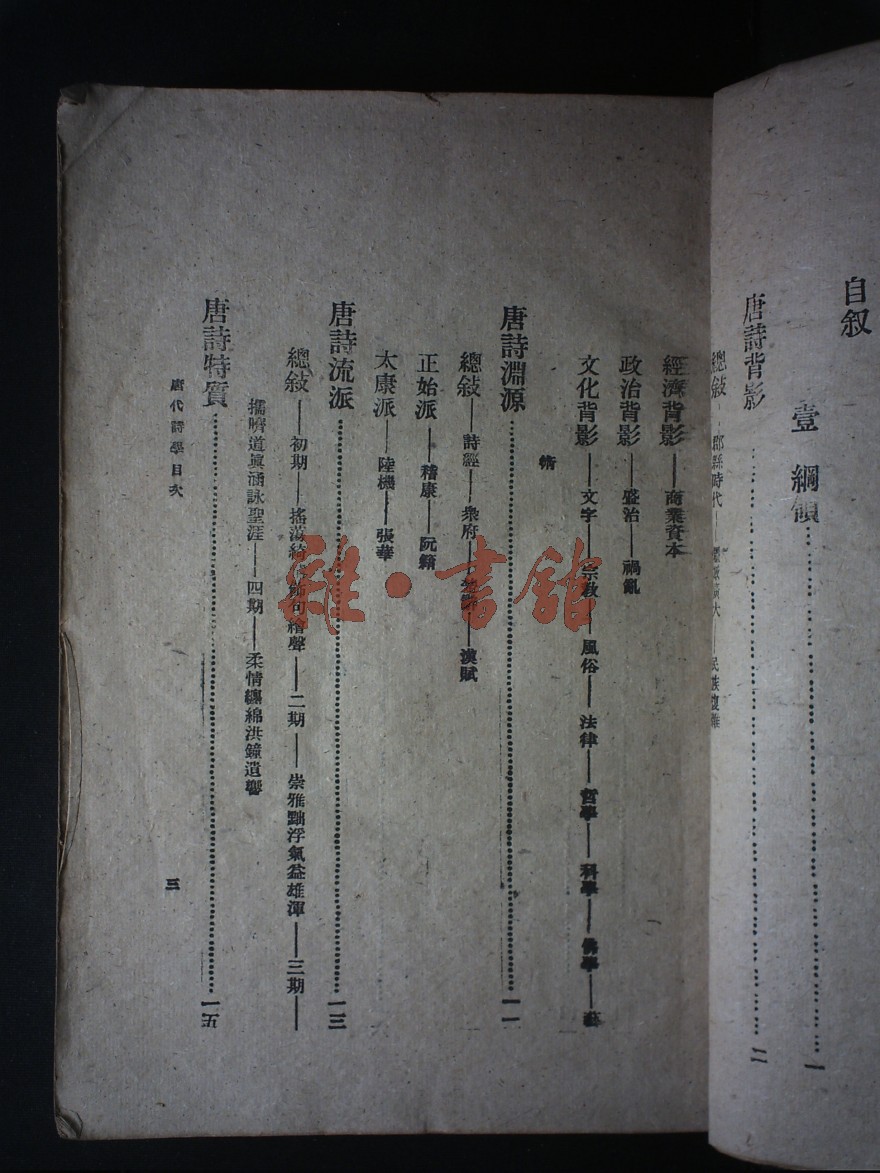 自叙
壹 綱領 一
唐詩背影 二
總敍 郡縣時代 大 民族複雜
經濟背影——商業資本
政治背影——盛治——禍亂
文化背影——文字——宗教——風俗——法律——哲學——科學——佛學——藝
術
唐詩淵源 一一
總敍——詩經——樂府——楚辭——漢賦
正始派——嵇康——阮籍
太康派——陸機——張華
唐詩流派 一三
總敍——初期——搖蕩綺 飾句繪聲——二期——崇雅黜浮氣益雄渾——三期——
擩嚌道眞涵詠聖涯——四期——柔情纏綿洪鐘遺響
唐詩特質 一五
唐代詩學目次
三
雜·書館